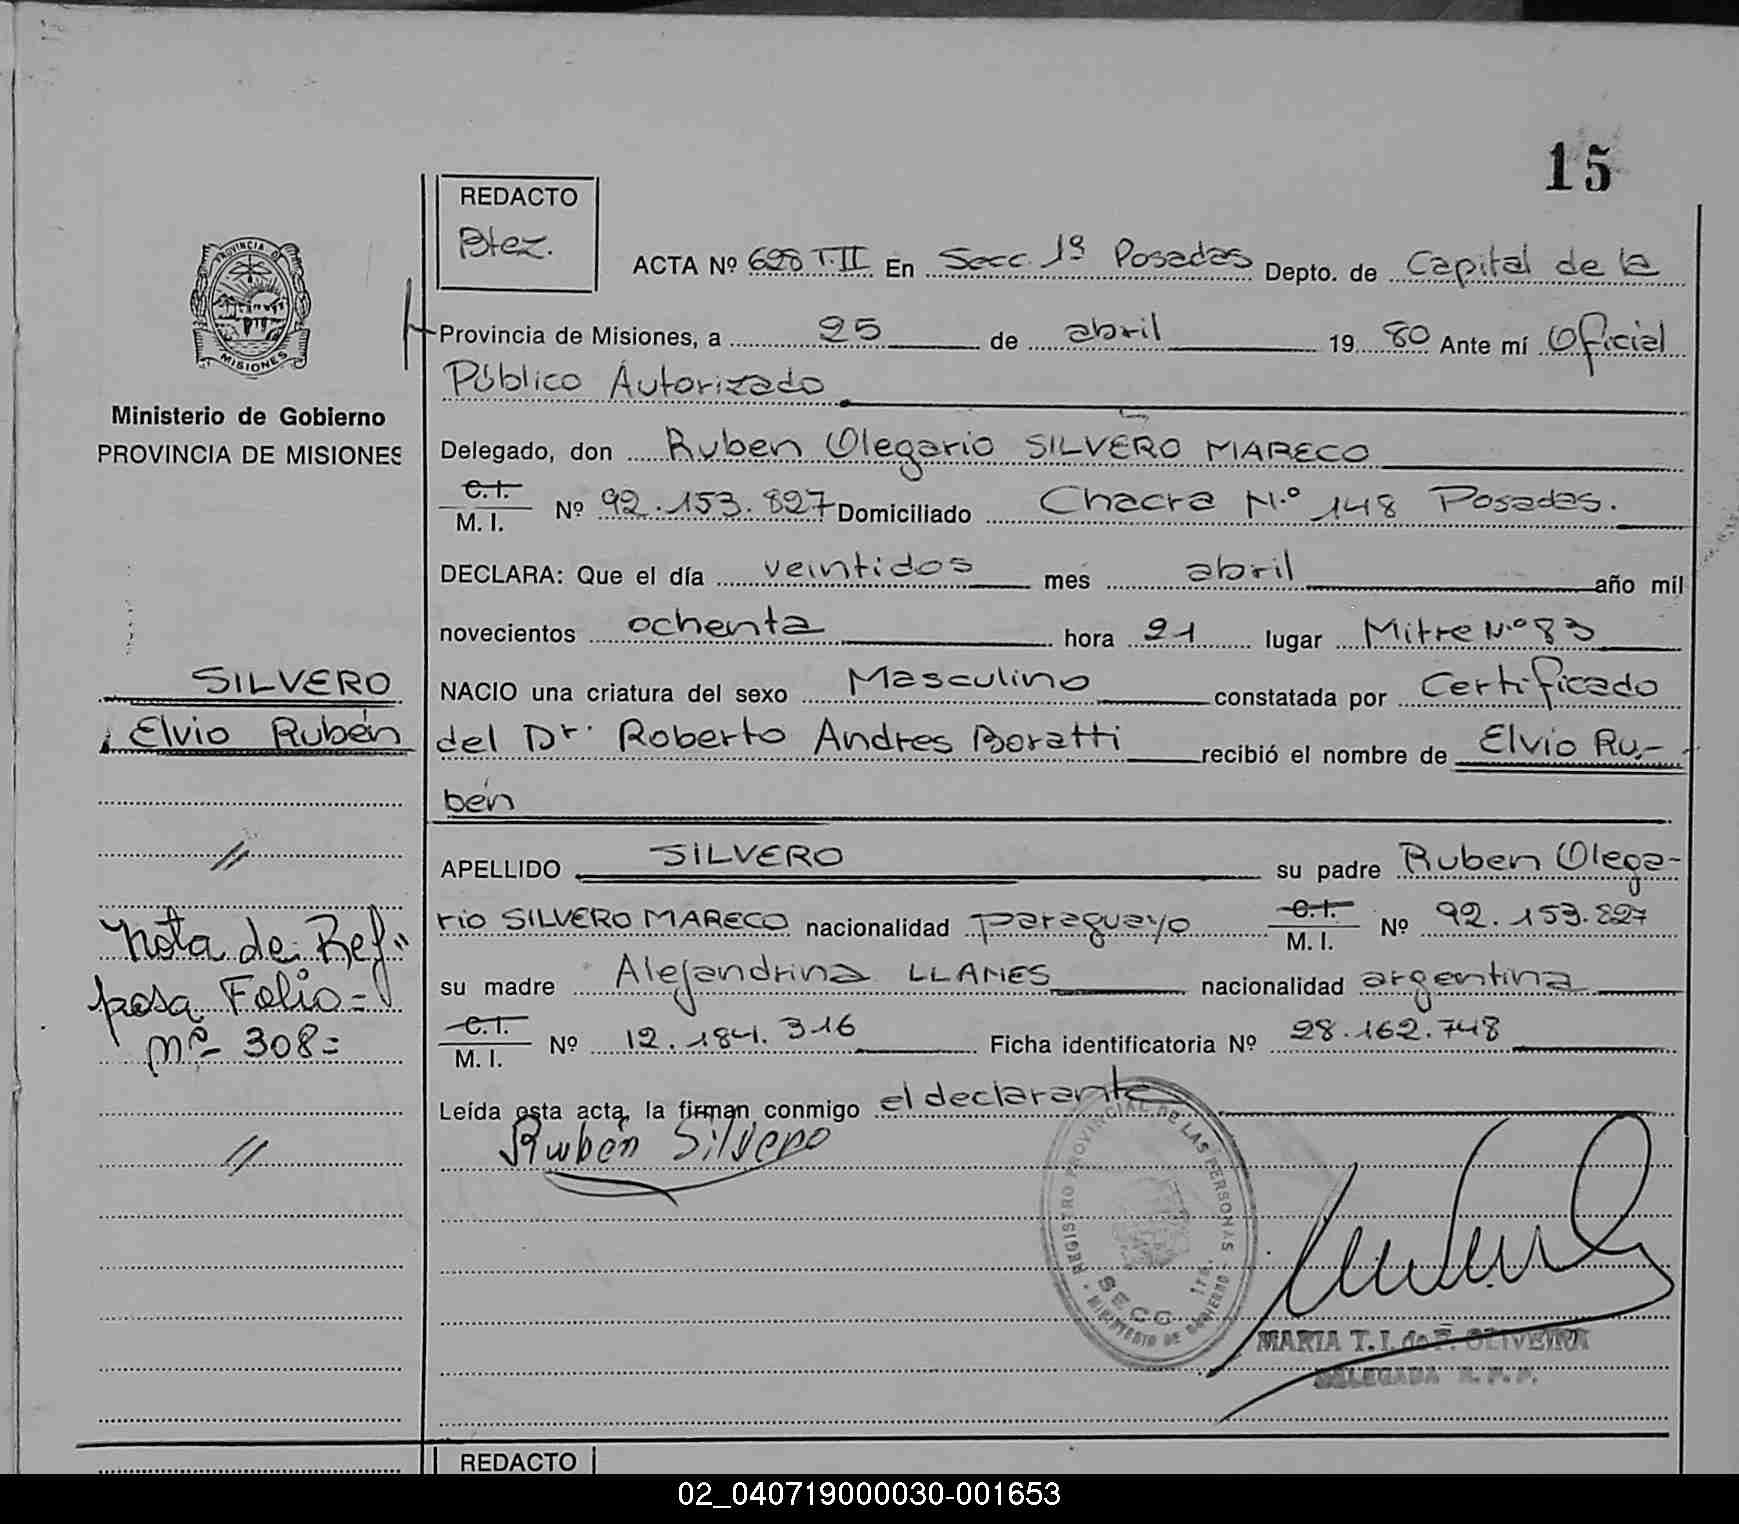 15
REDACTO
Btez.
ACTA Nº 698 T.II En Secc. 1ª Posadas Depto. de Capital de la
PROVINCIA DE MISIONES
Provincia de Misiones, a 25 de abril 19 80 Ante mí Oficial
Público Autorizado
Ministerio de Gobierno
PROVINCIA DE MISIONES
Delegado, don Ruben Olegario SILVERO MARECO
C.I.
M. I. Nº 92.153.827 Domiciliado Chacra N.º 148 Posadas.
DECLARA: Que el día veintidos mes abril año mil
novecientos ochenta hora 21 lugar Mitre N.º 83
NACIO una criatura del sexo Masculino constatada por Certificado
SILVERO
Elvio Rubén
del Dr. Roberto Andres Boratti recibió el nombre de Elvio Ru-
bén
APELLIDO SILVERO su padre Ruben Olega-
rio SILVERO MARECO nacionalidad paraguayo C.I. M. I. Nº 92.153.827
Nota de Ref"
posa Folio=
nº 308=
su madre Alejandrina LLAMES nacionalidad argentina
C.I.
M. I. Nº 12.184.316 Ficha identificatoria Nº 28.162.748
Leída esta acta, la firman conmigo el declarante
Rubén Silvero
REGISTRO PROVINCIAL DE LAS PERSONAS
SECC. 1ra.
MINISTERIO DE GOBIERNO
MARIA T. I. de F. OLIVEIRA
DELEGADA R. P. P.
REDACTO
02_040719000030-001653